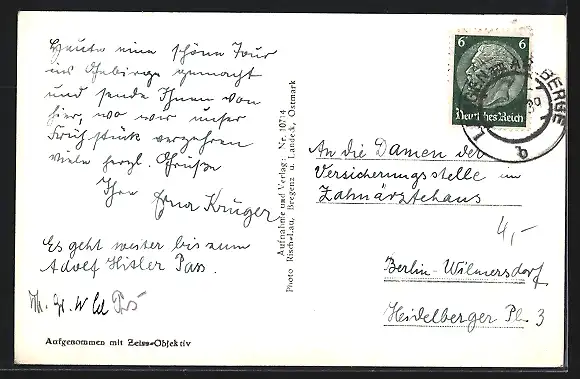 Heute eine schöne Tour
ins Gebirge gemacht
und sende Ihnen von
hier, wo wir unser
Frühstück verzehren
viele herzl. Grüße
Ihre Erna Krüger
Es geht weiter bis zum
Adolf Hitler Pass.
Aufgenommen mit Zeiss-Objektiv
Aufnahme und Verlag: Nr. 10714
Photo Risch-Lau, Bregenz u. Landeck, Ostmark
6 6
Deutsches Reich
BERGE
b
An die Damen der
Versicherungsstelle im
Zahnärztehaus
4,-
Berlin-Wilmersdorf
Heidelberger Pl. 3